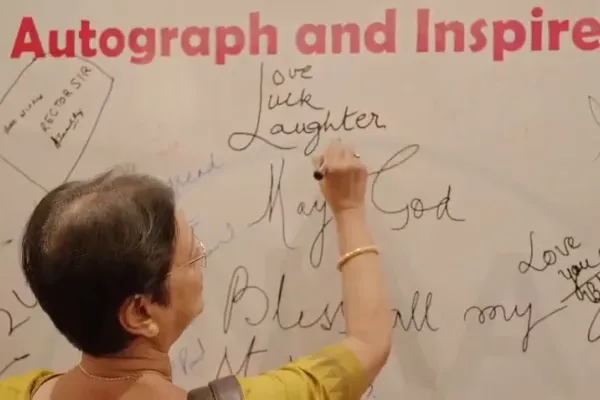 Autograph and Inspire
RECTOR SIR
Love
Luck
Laughter
May God
Bless all my
Love
you